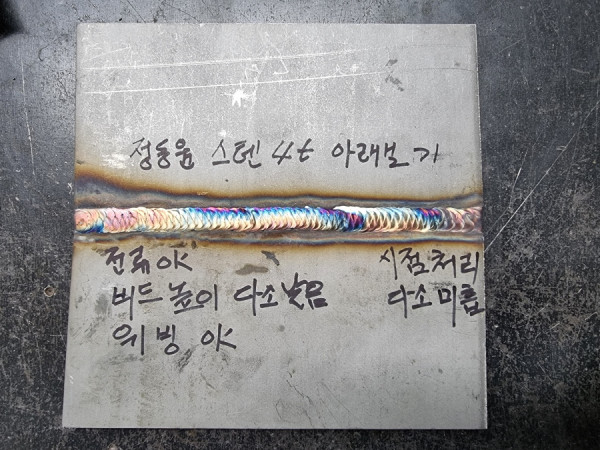 정동윤 스텐 4t 아래보기
전류 OK
비드 높이 다소 낮음
위빙 OK
시점처리
다소 미흡